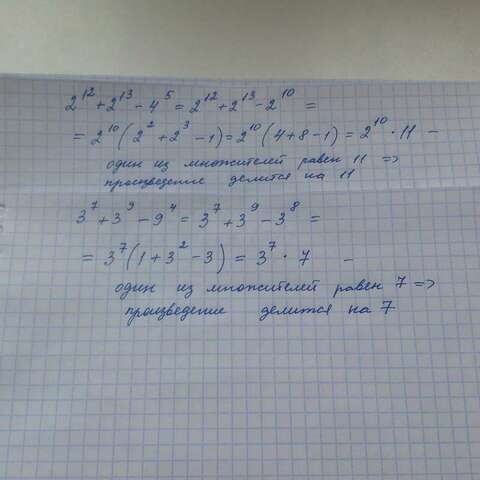 2¹² + 2¹³ - 4⁵ = 2¹² + 2¹³ - 2¹⁰ =
= 2¹⁰(2² + 2³ - 1) = 2¹⁰(4 + 8 - 1) = 2¹⁰ · 11 -
один из множителей равен 11 =>
произведение делится на 11
3⁷ + 3⁹ - 9⁴ = 3⁷ + 3⁹ - 3⁸ =
= 3⁷(1 + 3² - 3) = 3⁷ · 7 -
один из множителей равен 7 =>
произведение делится на 7